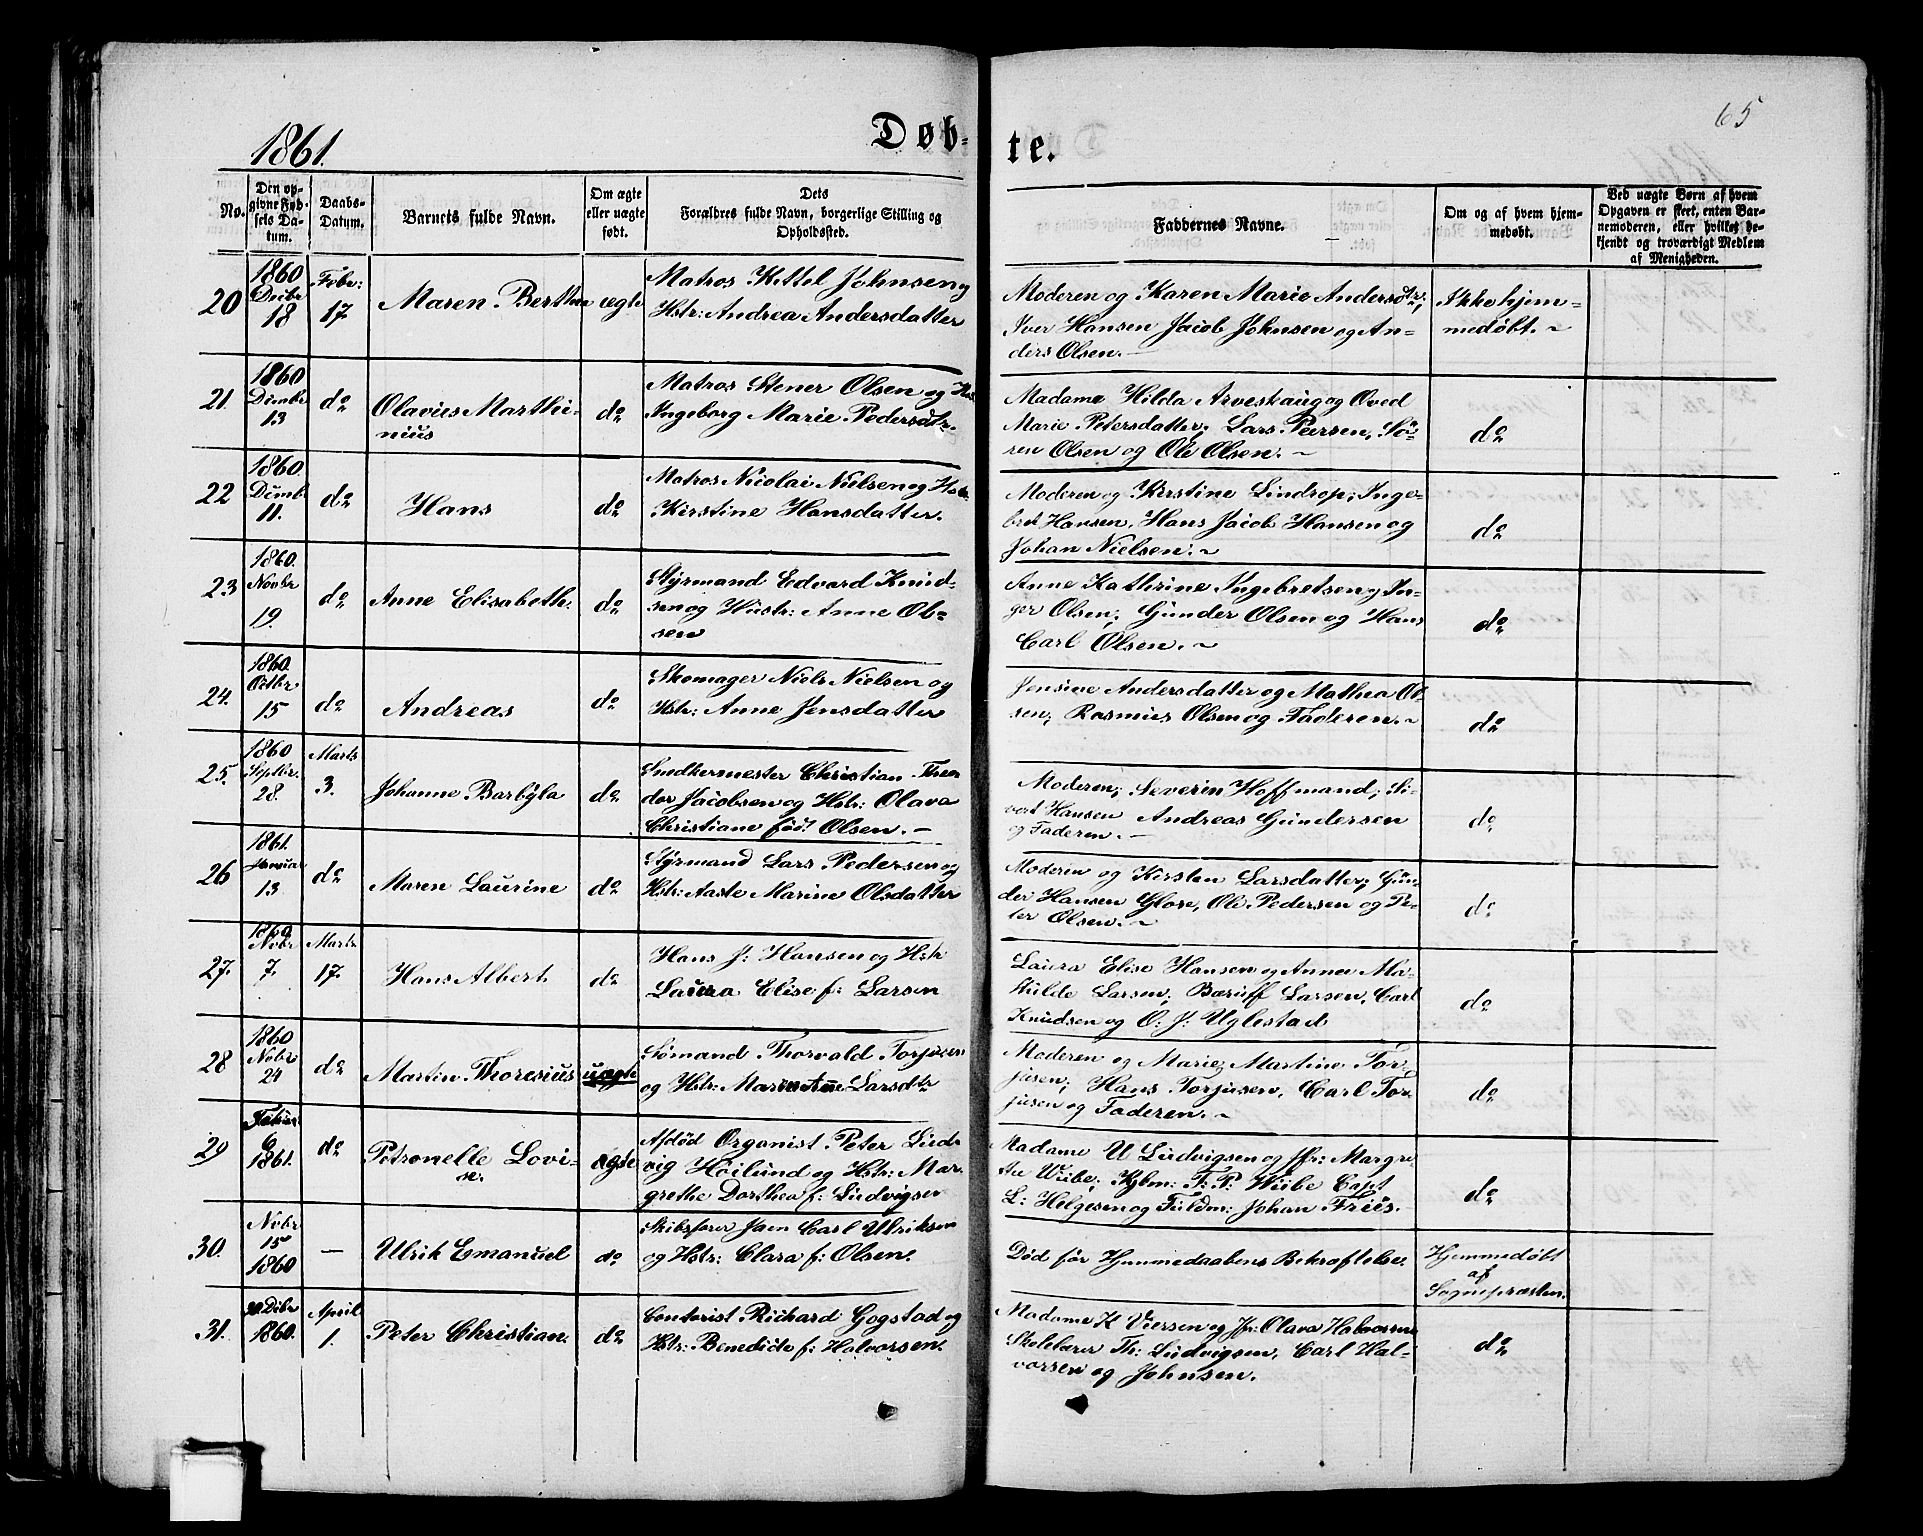 65
1861.
Døbte.
No.
Den opgivne Fødsels Datum.
Daabs-Datum.
Barnets fulde Navn.
Om ægte eller uægte født.
Dets Forældres fulde Navn, borgerlige Stilling og Opholdssted.
Faddernes Navne.
Om og af hvem hjemmedøbt.
Ved uægte Børn af hvem Opgaven er skeet, enten Barnemoderen, eller hvilket bekjendt og troværdigt Medlem af Menigheden.
20
1860 Decbr 18
Febr: 17.
Maren Berthe
ægte
Matros Kittel Johnsen og
Hstr: Andrea Andersdatter
Moderen og Karen Marie Andersdtr;
Iver Hansen Jacob Johnsen og An-
ders Olsen.
Ikke hjem-
medøbt.
21.
1860 Decmbr 13
do
Olavus Marthi-
nius
do
Matros Stener Olsen og Hst
Ingeborg Marie Pedersdtr.
Madame Hilda Arveskaug og Oved
Marie Petersdatter. Lars Peersen, Sö-
ren Olsen og Ole Olsen.
do
22
1860 Decmb. 11.
do
Hans
do
Matros Nicolai Nielsen og Hstr
Kirstine Hansdatter.
Moderen og Kirstine Lindrop; Inge-
bret Hansen, Hans Jacob Hansen og
Johan Nielsen.
do
23
1860. Novbr 19.
do
Anne Elisabeth.
do
Styrmand Edvard Knud-
sen og Hustr: Anne Ol-
sen
Anne Kathrine Ingebretsen og In-
ger Olsen; Gunder Olsen og Hans
Carl Olsen.
do
24.
1860. Octbr 15
do
Andreas
do
Skomager Niels Nielsen og
Hstr: Anne Jensdatter
Jensine Andersdatter og Mathea Ol-
sen, Rasmus Olsen og Faderen.
do
25.
1860 Septbr. 28
Marts 3.
Johanne Barbyla
do
Snedkermester Christian Theo-
dor Jacobsen og Hstr: Olava
Christiane född Olsen.
Moderen; Severin Hoffmand; Si-
vert Hansen Andreas Gundersen
og Faderen.
do
26
1861. Januar 13
do
Maren Laurine
do
Styrmand Lars Pedersen og
Hstr: Aaste Marine Olsdatter
Moderen og Kirsten Larsdatter; Gün-
der Hansen Glose, Ole Pedersen og Pe-
ter Olsen.
do
27.
1860 Novbr 7.
Marts 17.
Hans Albert
do
Hans J: Hansen og Hstr
Laura Elise f: Larsen
Laura Elise Hansen og Anne Ma-
thilde Larsen; Baruff Larsen, Carl
Knudsen og O. J. Uglestad
do
28
1860 Novbr 24
do
Martin Thoresius
uægte
Sömand Thorvald Torjusen
og Hstr: Maren Ane Larsdtr
Moderen og Marie Martine Tor-
jusen; Hans Torjusen, Carl Tor-
jusen og Faderen.
do
29
6 1861.
do
Petronelle Lovi-
se.
ægte
Afdöd Organist Peter Lud-
vig Höilund og Hstr: Mar-
grethe Dorthea f: Ludvigsen
Madame U Ludvigsen og Jfr: Margre-
the Wiibe; Kjbm: F: P: Wiibe Capt
L: Helgesen og Fuldm: Johan Friis.
do
30.
Novbr 15 1860
—
Ulrik Emanuel
do
Skibsfører Jaen Carl Ulriksen
og Hstr: Clara f: Olsen.
Död för Hjemmedaabens Bekræftelse.
Hjemmedøbt
af
Sognepræsten.
31.
30. Decbr 1860.
April 1.
Peter Christian.
do
Contorist Richard Gogstad og
Hstr: Benedicte f: Halvorsen.
Madame K Viersen og Jfr: Olava Halvorsen
Skolelærer Th: Ludvigsen, Carl Hal-
vorsen og Johnsen.
do